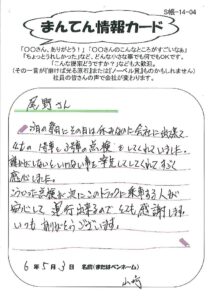 S帳-14-04
まんてん情報カード
「〇〇さん、ありがとう！」「〇〇さんのこんなところがすごいなぁ」
「ちょっとうれしかった」など、どんな小さな事でも何でもOKです。
「こんな提案どうですか？」なども大歓迎。
（その一言が「磨けば光る原石」または「ノーベル賞」ものかもしれません）
社員の皆さんの声で会社が変わります。
尾野さん
の朝にその日は休みなのに会社に出接て
4tの 洗車と3つの点検 をしてくれていました。
誰かがしないといけない事を率先してしてくれてすごく
感心しました。
こういった点検が次にこのトラックに乗車する人が
安心して 運行出来るのでとても感謝します
いつもありがとうございます。
6年5月3日 名前（またはペンネーム）
山崎